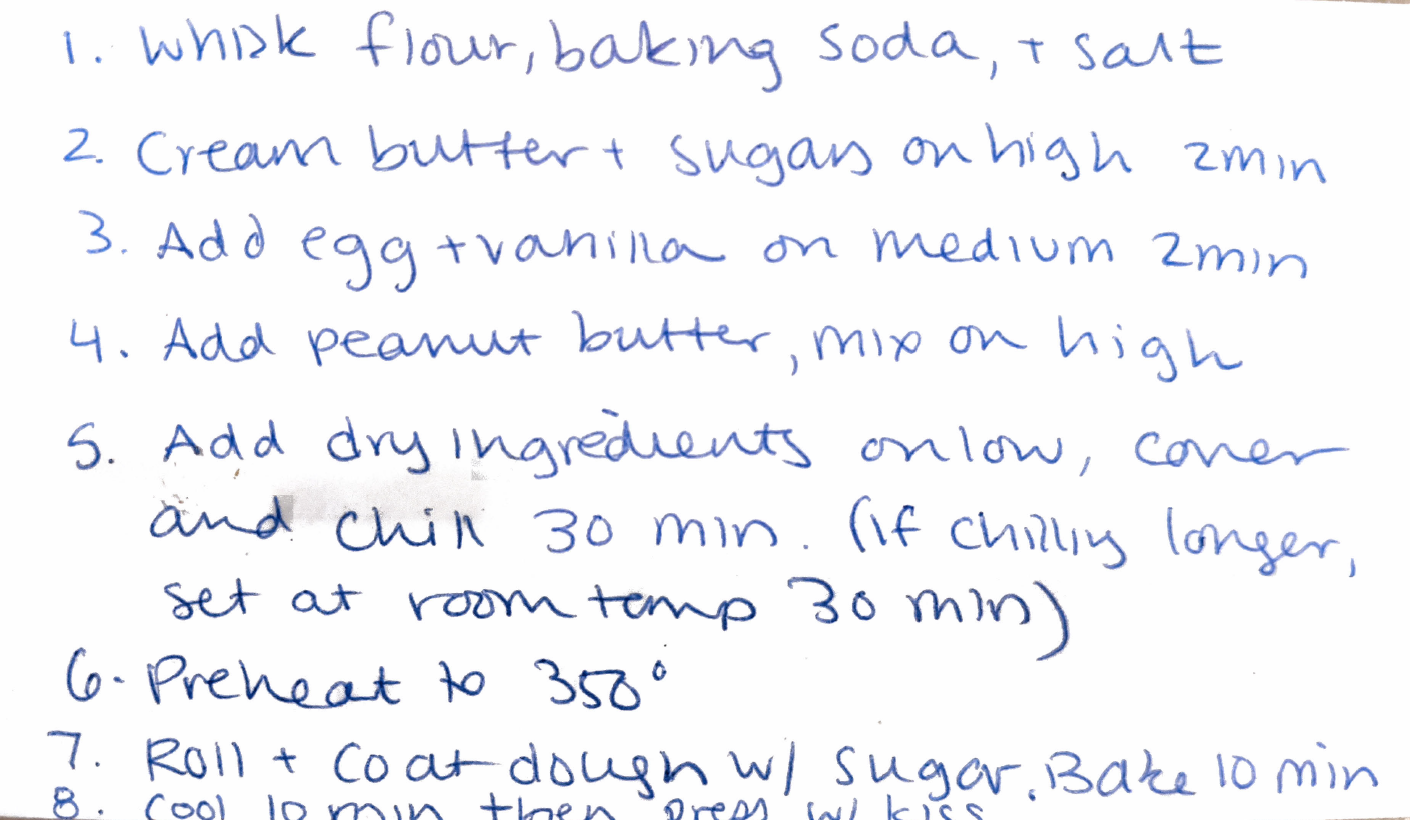 1. Whisk flour, baking soda, + salt
2. Cream butter + sugars on high 2min
3. Add egg + vanilla on medium 2min
4. Add peanut butter, mix on high
5. Add dry ingredients on low, cover
and chill 30 min. (if chilling longer,
set at room temp 30 min)
6. Preheat to 350°
7. Roll + coat dough w/ sugar. Bake 10 min
8. Cool 10 min then press w/ kiss